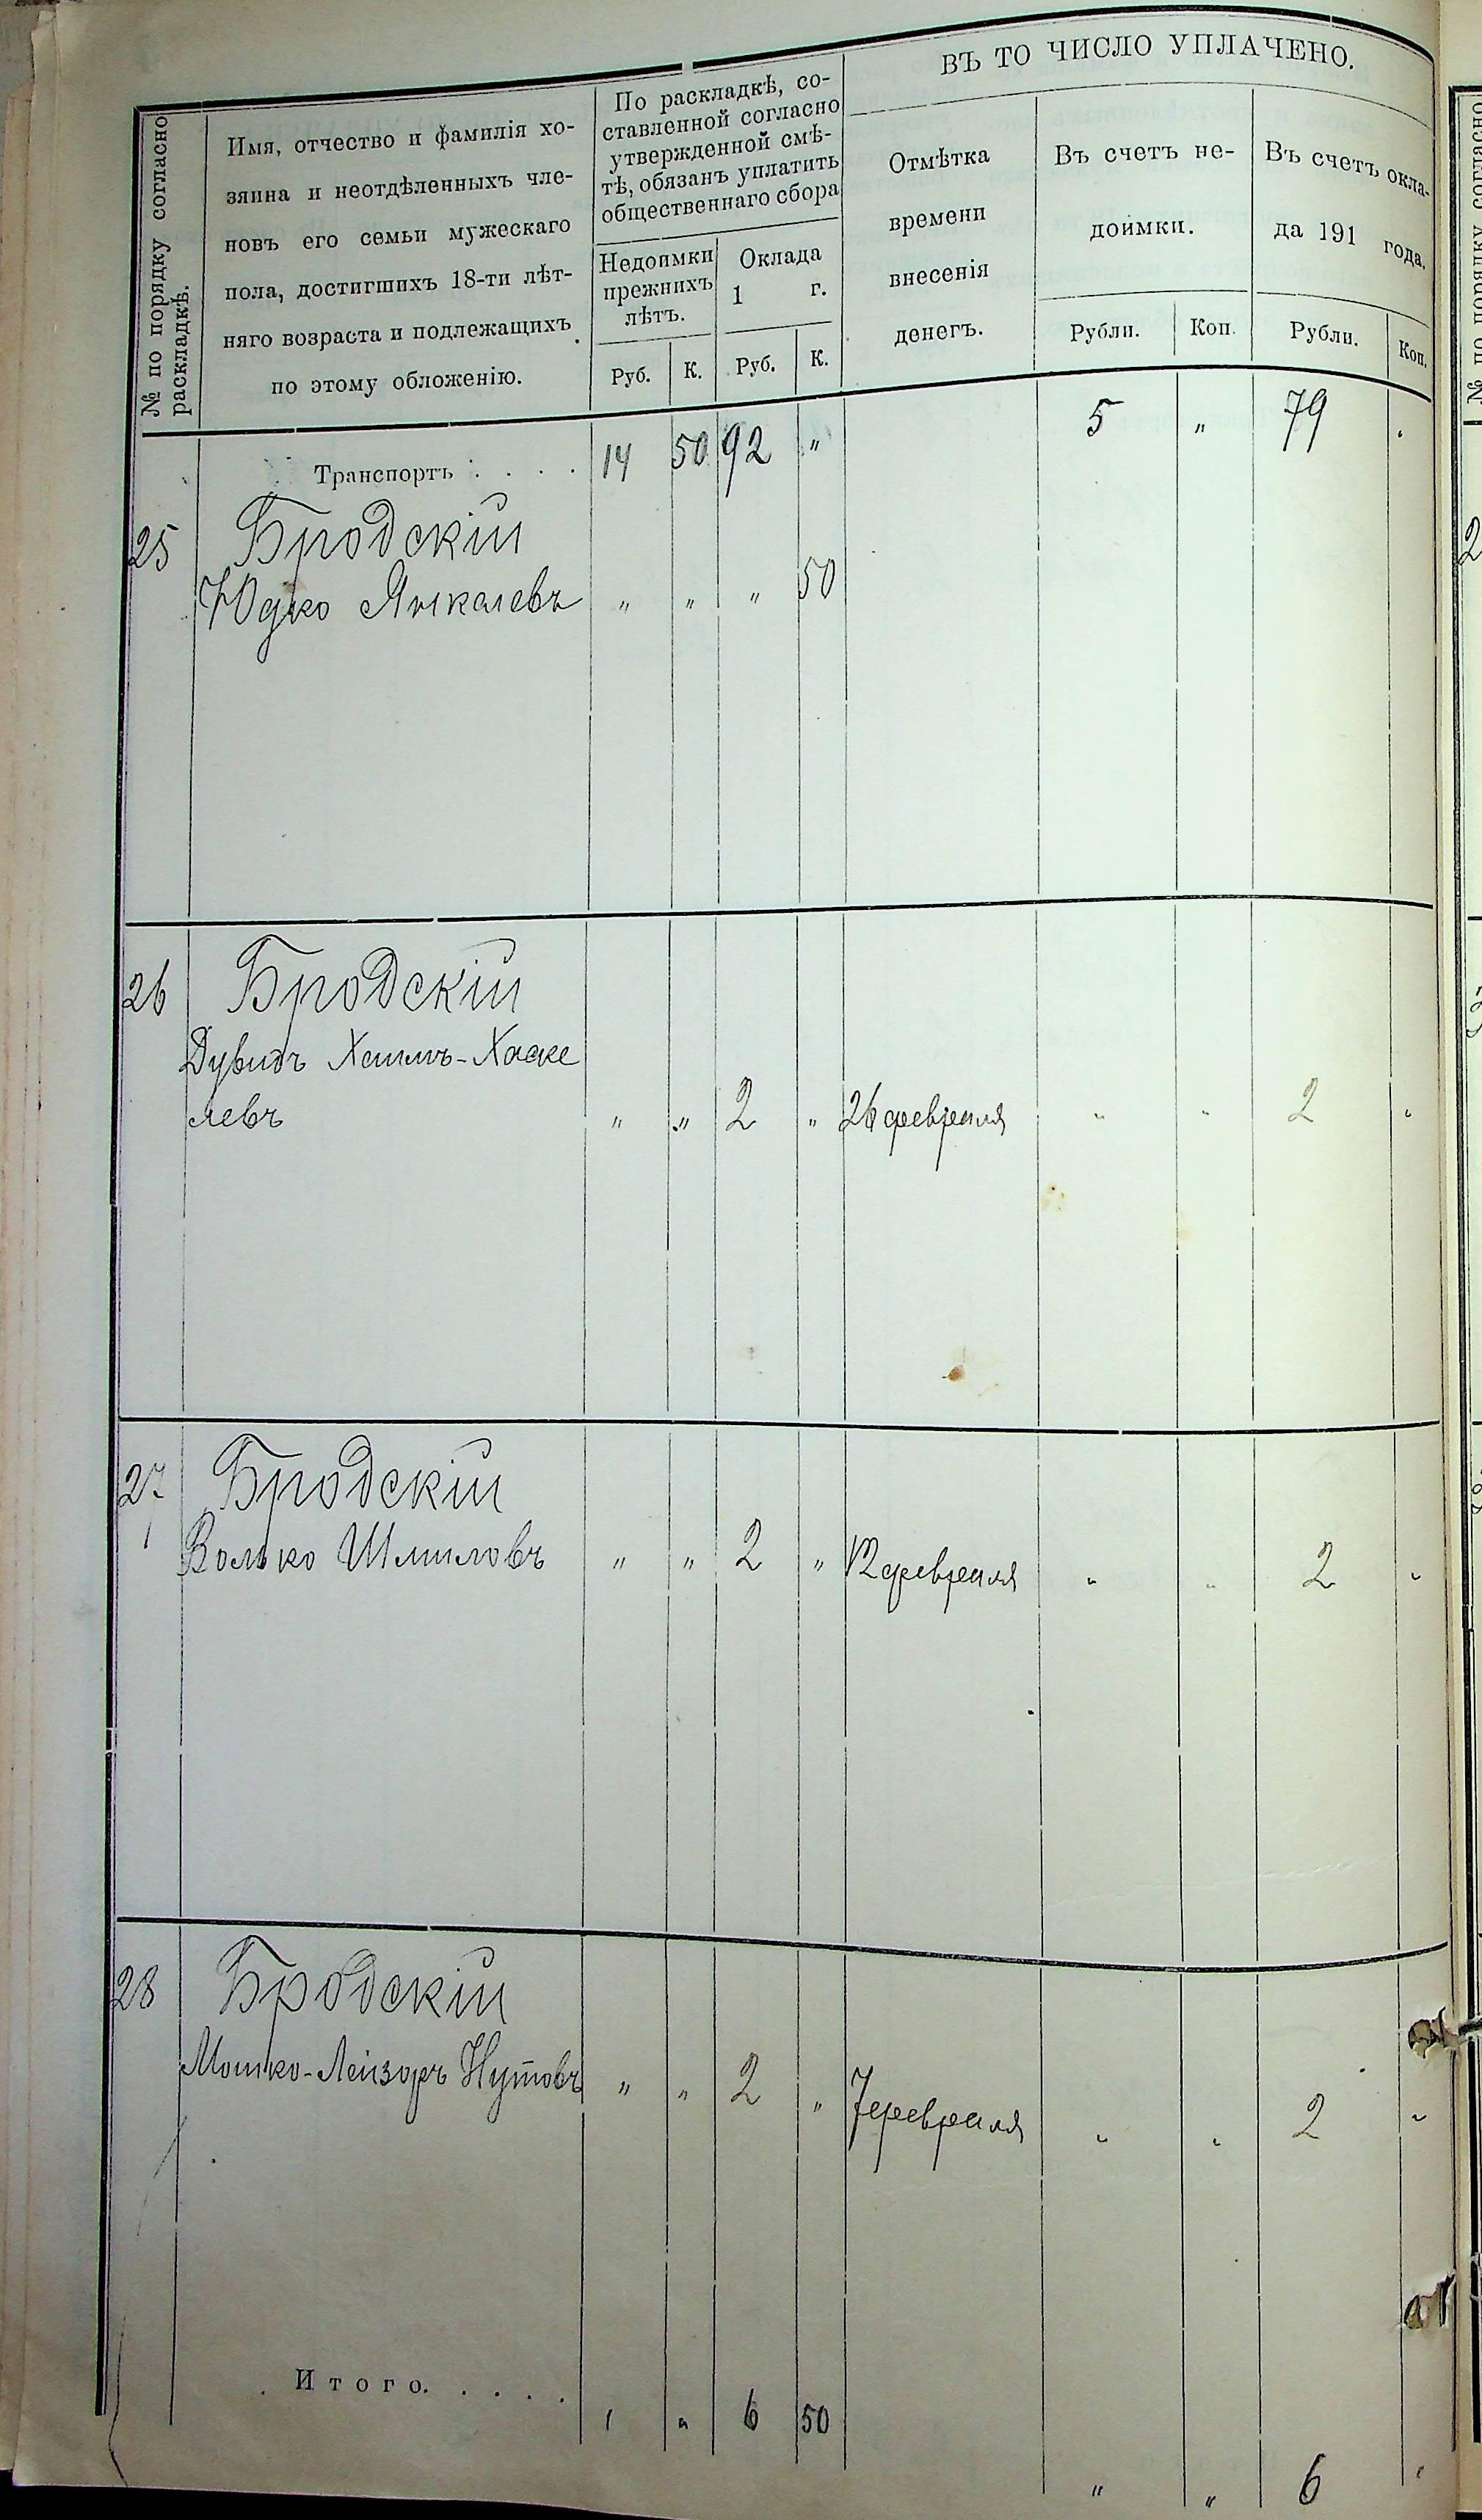 № по порядку согласно раскладкѣ.
Имя, отчество и фамилія хо-
зяина и неотдѣленныхъ чле-
новъ его семьи мужескаго
пола, достигшихъ 18-ти лѣт-
няго возраста и подлежащихъ
по этому обложенію.
По раскладкѣ, со-
ставленной согласно
утвержденной смѣ-
тѣ, обязанъ уплатить
общественнаго сбора
Недоимки
прежнихъ
лѣтъ.
Оклада
1 г.
Руб. К. Руб. К.
ВЪ ТО ЧИСЛО УПЛАЧЕНО.
Отмѣтка
времени
внесенія
денегъ.
Въ счетъ не-
доимки.
Рубли. Коп.
Въ счетъ окла-
да 191 года.
Рубли. Коп.
Транспортъ . . . . 14 50 92 " 5 " 79 "
25 Бродскій
Юдко Янкелевъ " " " 50
26 Бродскій
Дувидъ Хаимъ-Хаске
левъ " " 2 " 26 февраля " " 2 "
27 Бродскій
Волько Шмиловъ " " 2 " 12 февраля " " 2 "
28 Бродскій
Мошко-Лейзоръ Нутовъ " " 2 " 7 февраля " " 2 "
Итого. . . . . " " 6 50 " " 6 "